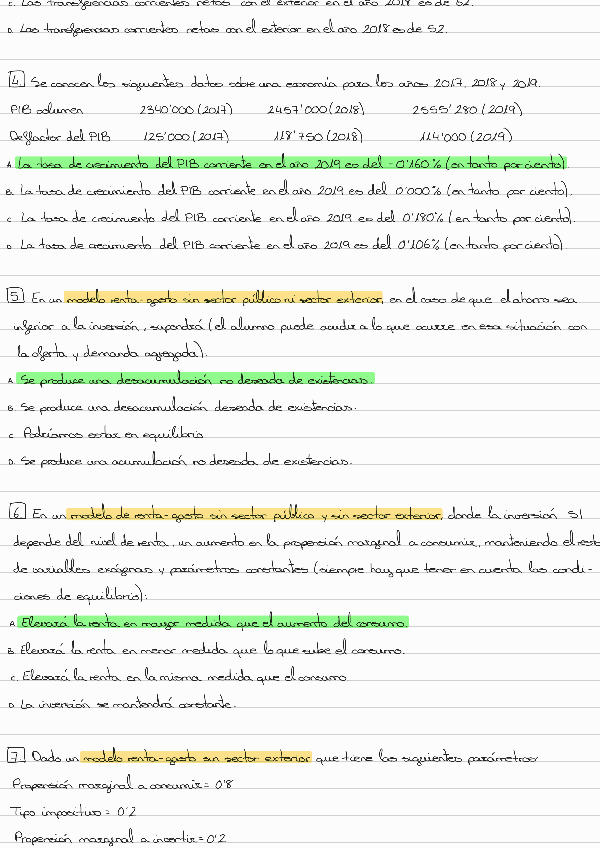 C. Las transferencias corrientes netas con el exterior en el año 2018 es de 52.
D. Las transferencias corrientes netas con el exterior en el año 2018 es de 52.
4 Se conocen los siguientes datos sobre una economía para los años 2017, 2018 y 2019.
PIB volumen 2340'000 (2017) 2457'000 (2018) 2555'280 (2019)
Deflactor del PIB 125'000 (2017) 118'750 (2018) 114'000 (2019)
A. La tasa de crecimiento del PIB corriente en el año 2019 es del -0'160% (en tanto por ciento).
B. La tasa de crecimiento del PIB corriente en el año 2019 es del 0'000% (en tanto por ciento).
C. La tasa de crecimiento del PIB corriente en el año 2019 es del 0'180% (en tanto por ciento).
D. La tasa de crecimiento del PIB corriente en el año 2019 es del 0'106% (en tanto por ciento)
5 En un modelo renta-gasto sin sector público ni sector exterior, en el caso de que el ahorro sea
inferior a la inversión, supondrá (el alumno puede acudir a lo que ocurre en esa situación con
la oferta y demanda agregada):
A. Se produce una desacumulación no deseada de existencias.
B. Se produce una desacumulación deseada de existencias.
C. Podríamos estar en equilibrio
D. Se produce una acumulación no deseada de existencias.
6 En un modelo de renta-gasto sin sector público y sin sector exterior, donde la inversión SI
depende del nivel de renta, un aumento en la proporción marginal a consumir, manteniendo el resto
de variables exógenas y parámetros constantes (siempre hay que tener en cuenta las condi-
ciones de equilibrio):
A. Elevará la renta en mayor medida que el aumento del consumo.
B. Elevará la renta en menor medida que lo que sube el consumo.
C. Elevará la renta en la misma medida que el consumo
D. La inversión se mantendrá constante.
7 Dado un modelo renta-gasto sin sector exterior que tiene los siguientes parámetros
Propensión marginal a consumir = 0'8
Tipo impositivo = 0'2
Propensión marginal a invertir = 0'2